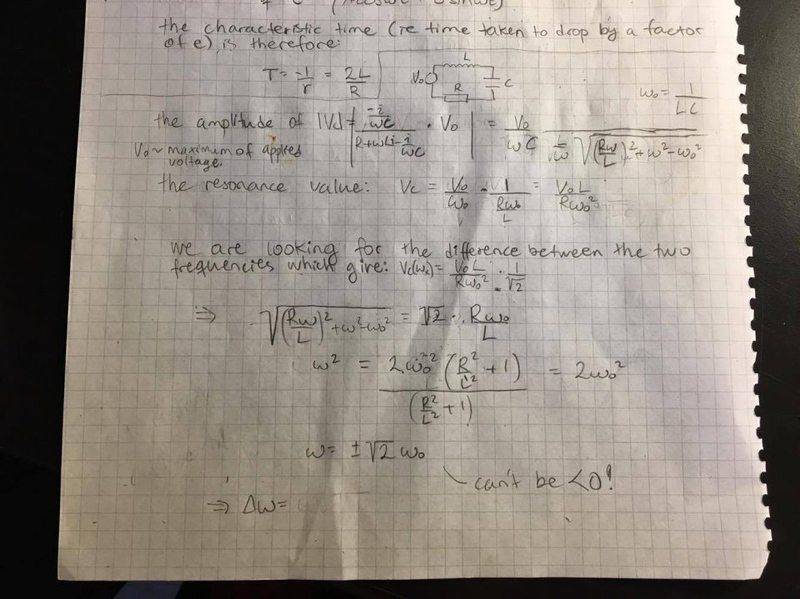 the characteristic time (ie time taken to drop by a factor
of e), is therefore:
T = -1/r = 2L/R
L
V₀ C
R
ω₀ = 1/LC
the amplitude of |Vc| = | (-i/ωC)/(R+ωLi-i/ωC) · V₀ | = V₀/ωC 1/(1/ω √((Rω/L)²+ω²-ω₀²))
V₀ ~ maximum of applied
voltage.
the resonance value: Vc = V₀/ω₀ · 1/(Rω₀/L) = V₀L/Rω₀²
we are looking for the difference between the two
frequencies which give: Vc(ωᵢ) = V₀L/Rω₀² · 1/√2
⇒ √((Rω/L)²+ω²-ω₀²) = √2 · Rω₀/L
ω² = 2ω₀² (R²/L² + 1)/(R²/L² + 1) = 2ω₀²
ω = ±√2 ω₀
can't be <0!
⇒ Δω =